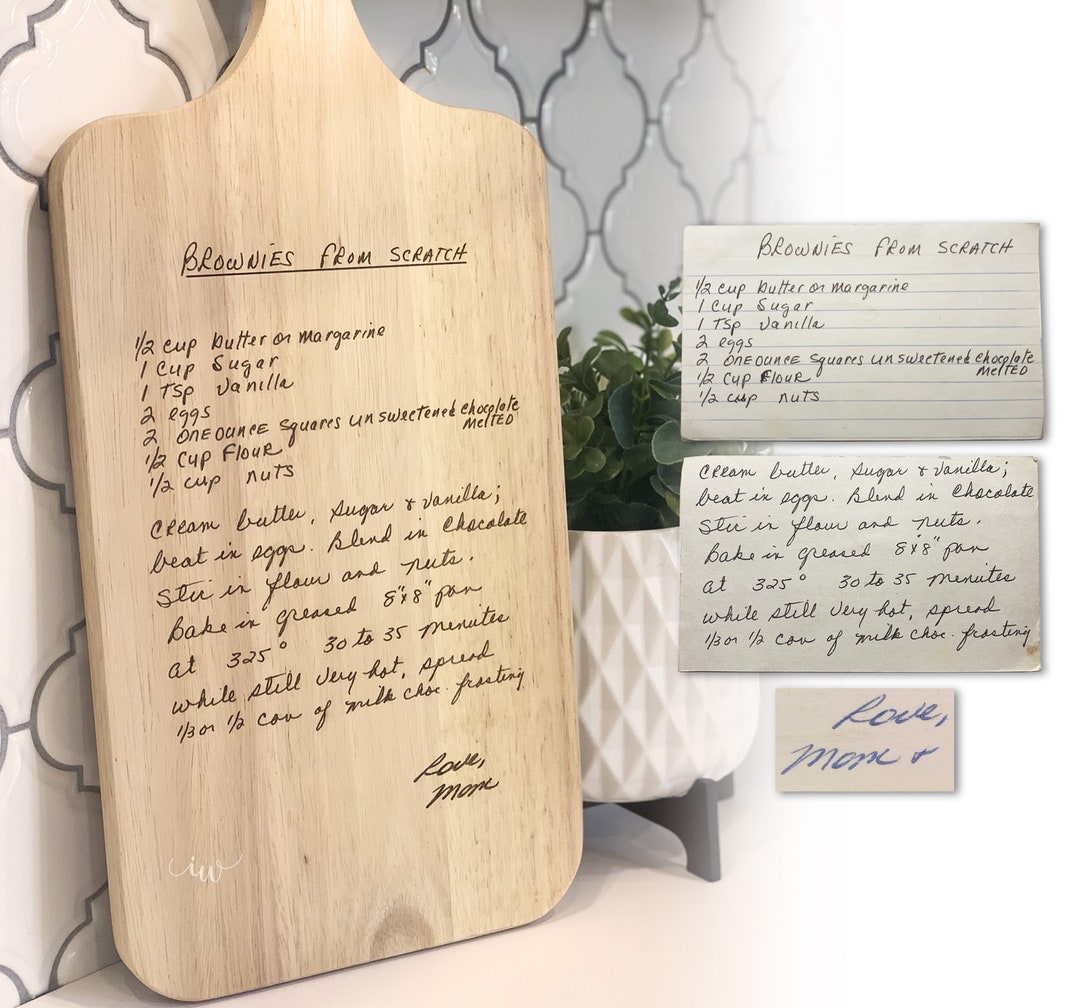 BROWNIES FROM SCRATCH
1/2 cup butter or margarine
1 cup Sugar
1 TSp Vanilla
2 eggs
2 ONE OUNCE Squares unsweetened chocolate
MELTED
1/2 cup FLOUR
1/2 cup nuts
Cream butter, Sugar & Vanilla;
beat in eggs. Blend in Chocolate
Stir in flour and nuts.
Bake in greased 8"x8" pan
at 325° 30 to 35 menutes
while still very hot, spread
1/3 or 1/2 can of milk choc. frosting
Love,
Mom
iw
BROWNIES FROM SCRATCH
1/2 cup butter or margarine
1 cup Sugar
1 TSp Vanilla
2 eggs
2 ONE OUNCE Squares unsweetened chocolate
MELTED
1/2 cup FLOUR
1/2 cup nuts
Cream butter, Sugar & Vanilla;
beat in eggs. Blend in Chocolate
Stir in flour and nuts.
Bake in greased 8"x8" pan
at 325° 30 to 35 menutes
while still very hot, spread
1/3 or 1/2 can of milk choc. frosting
Love,
Mom &